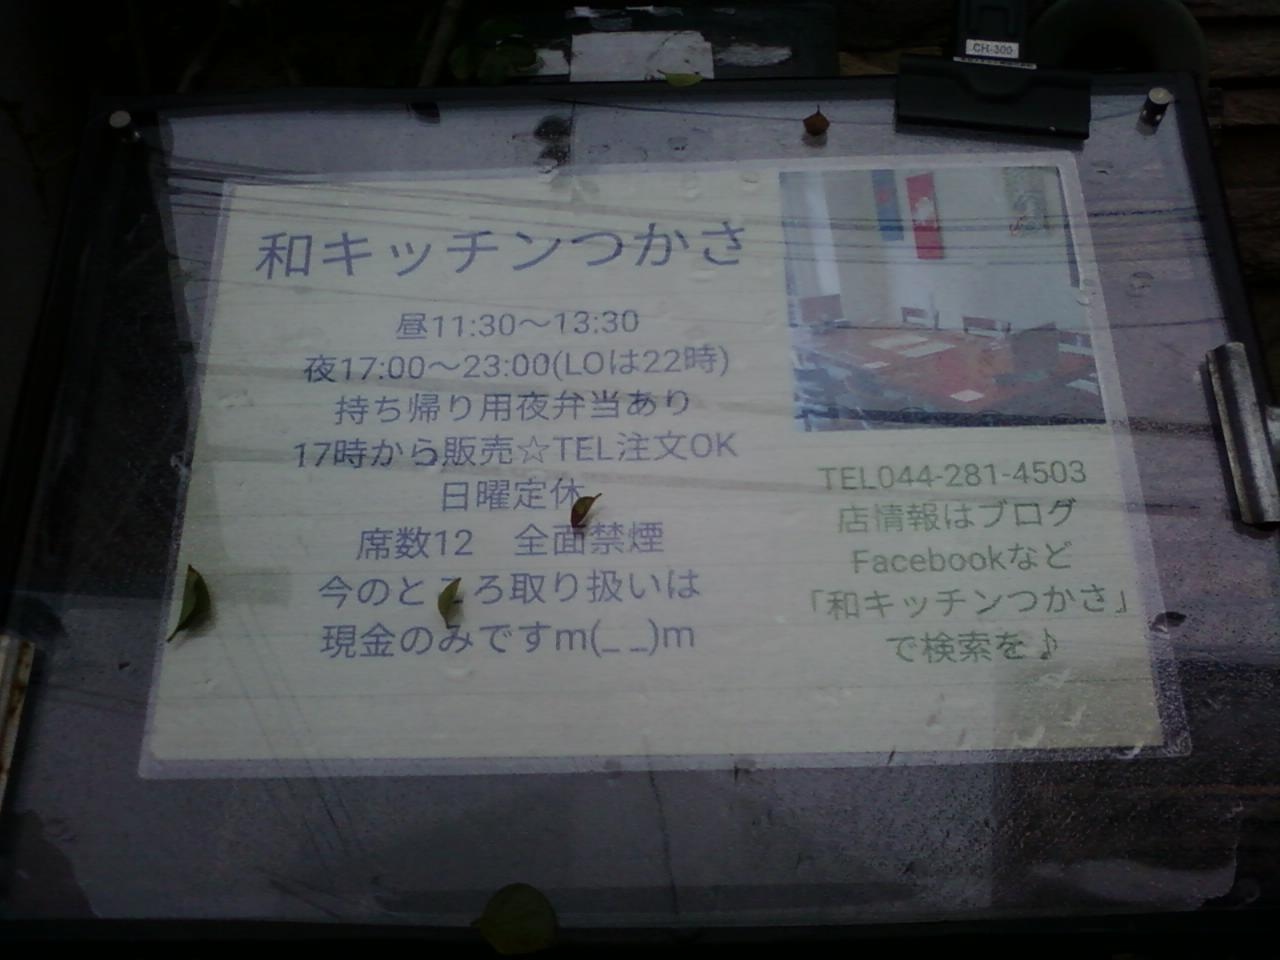 CH-300
和キッチンつかさ
昼11:30～13:30
夜17:00～23:00(LOは22時)
持ち帰り用夜弁当あり
17時から販売☆TEL注文OK
日曜定休
席数12　全面禁煙
今のところ取り扱いは
現金のみですm(_ _)m
TEL044-281-4503
店情報はブログ
Facebookなど
「和キッチンつかさ」
で検索を♪